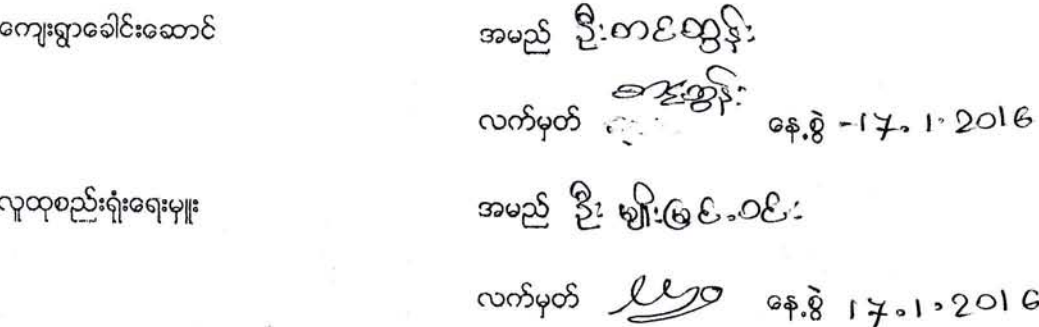 ကျေးရွာခေါင်းဆောင် အမည် ဦးတင်ထွန်း
လက်မှတ် တင်ထွန်း နေ့စွဲ -17.1.2016
လူထုစည်းရုံးရေးမှူး အမည် ဦး မျိုးမြင့်ဝင်း
လက်မှတ် နေ့စွဲ 17.1.2016